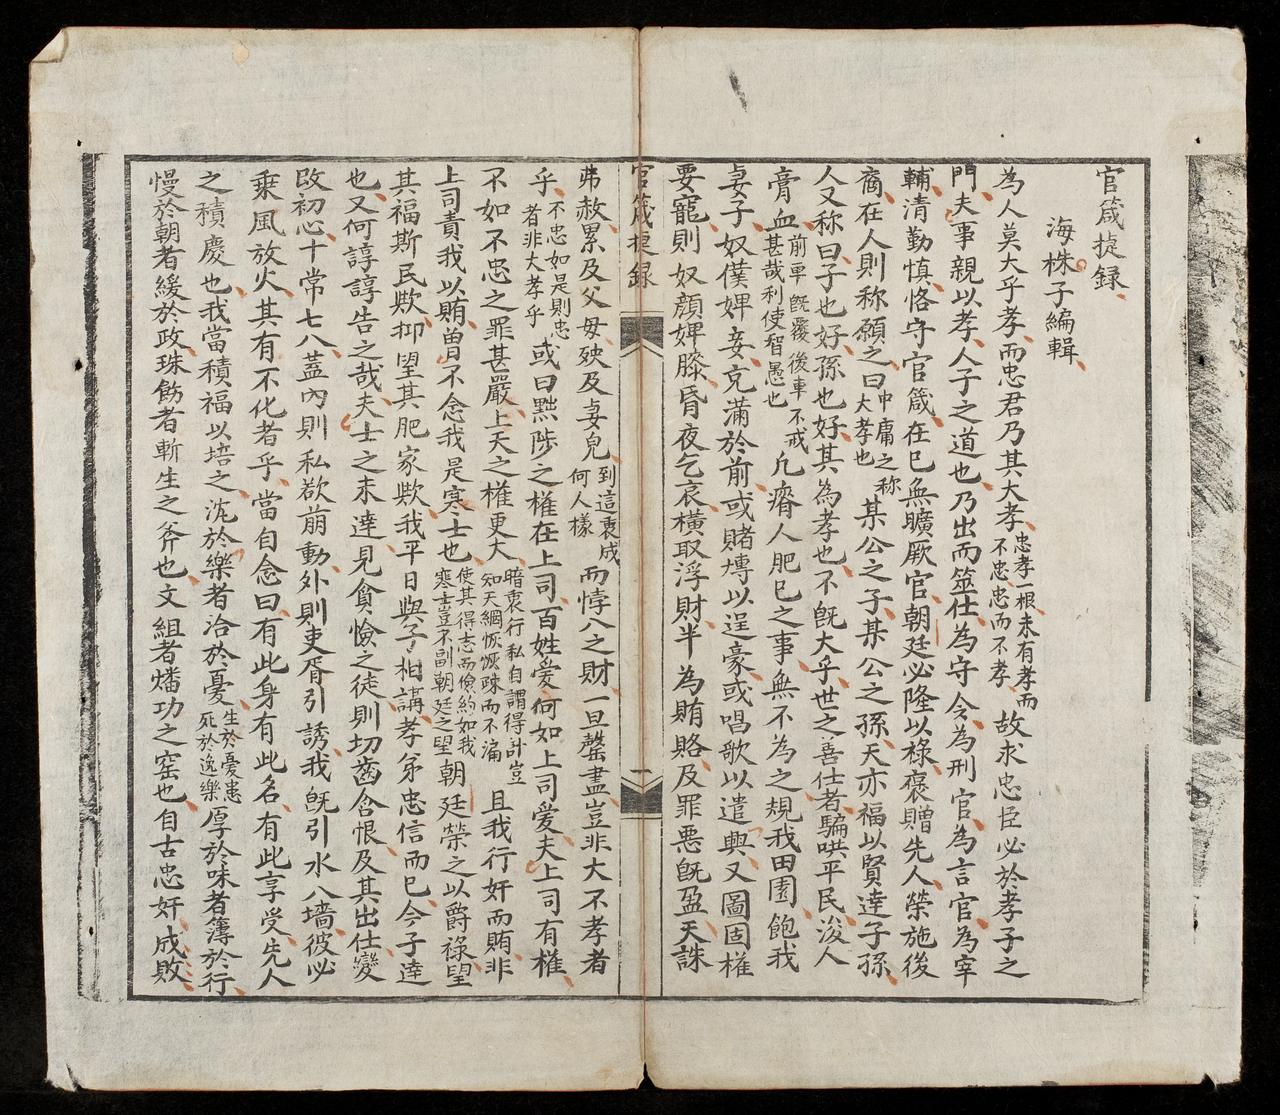 官箴捷録
海株子編輯
為人莫大乎孝而忠君乃其大孝忠孝一根未有孝而不忠忠而不孝故求忠臣必於孝子之
門夫事親以孝人子之道也乃出而筮仕為守令為刑官為言官為宰
輔清勤慎恪守官箴在已無曠厥官朝廷必隆以祿褒贈先人榮施後
裔在人則称願之曰中庸之称大孝也某公之子某公之孫天亦福以賢達子孫
人又称曰子也好孫也好其為孝也不旣大乎世之善仕者騙哄平民浚人
膏血前車旣覆後車不戒甚哉利使智愚也凢瘠人肥已之事無不為之規我田園飽我
妻子奴僕婢妾充滿於前或賭愽以逞豪或唱歌以遣興又圖固權
要寵則奴顔婢膝昏夜乞哀橫取浮財半為賄賂及罪悪旣盈天誅
官箴捷録
一
弗赦累及父母殃及妻兒到這裏成何人樣而悖入之財一旦罄盡豈非大不孝者
乎不忠如是則忠者非大孝乎或曰黜陟之權在上司百姓爱何如上司爱夫上司有權
不如不忠之罪甚嚴上天之權更大暗裏行私自謂得計豈知天綱恢恢疎而不漏且我行奸而賄非
上司責我以賄曽不念我是寒士也使其得志而儉約如我寒士豈不副朝廷之望朝廷榮之以爵祿望
其福斯民欺抑望其肥家欺我平日與子相講孝弟忠信而已今子達
也又何諄諄告之哉夫士之未達見貪憸之徒則切齒含恨及其出仕變
改初心十常七八葢内則私欲萠動外則吏胥引誘我旣引水入墻彼必
乗風放火其有不化者乎當自念曰有此身有此名有此享受先人
之積慶也我當積福以培之沈於樂者洽於憂生於憂患死於逸樂厚於味者簿於行
慢於朝者緩於政珠飾者斬生之斧也文組者燔功之窑也自古忠奸成敗